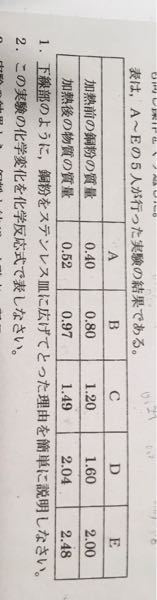 も同じ操作をくり返した。
表は，A～Eの5人が行った実験の結果である。
A B C D E
加熱前の銅粉の質量 0.40 0.80 1.20 1.60 2.00
加熱後の物質の質量 0.52 0.97 1.49 2.04 2.48
1．下線部のように，銅粉をステンレス皿に広げてとった理由を簡単に説明しなさい。
2．この実験の化学変化を化学反応式で表しなさい。